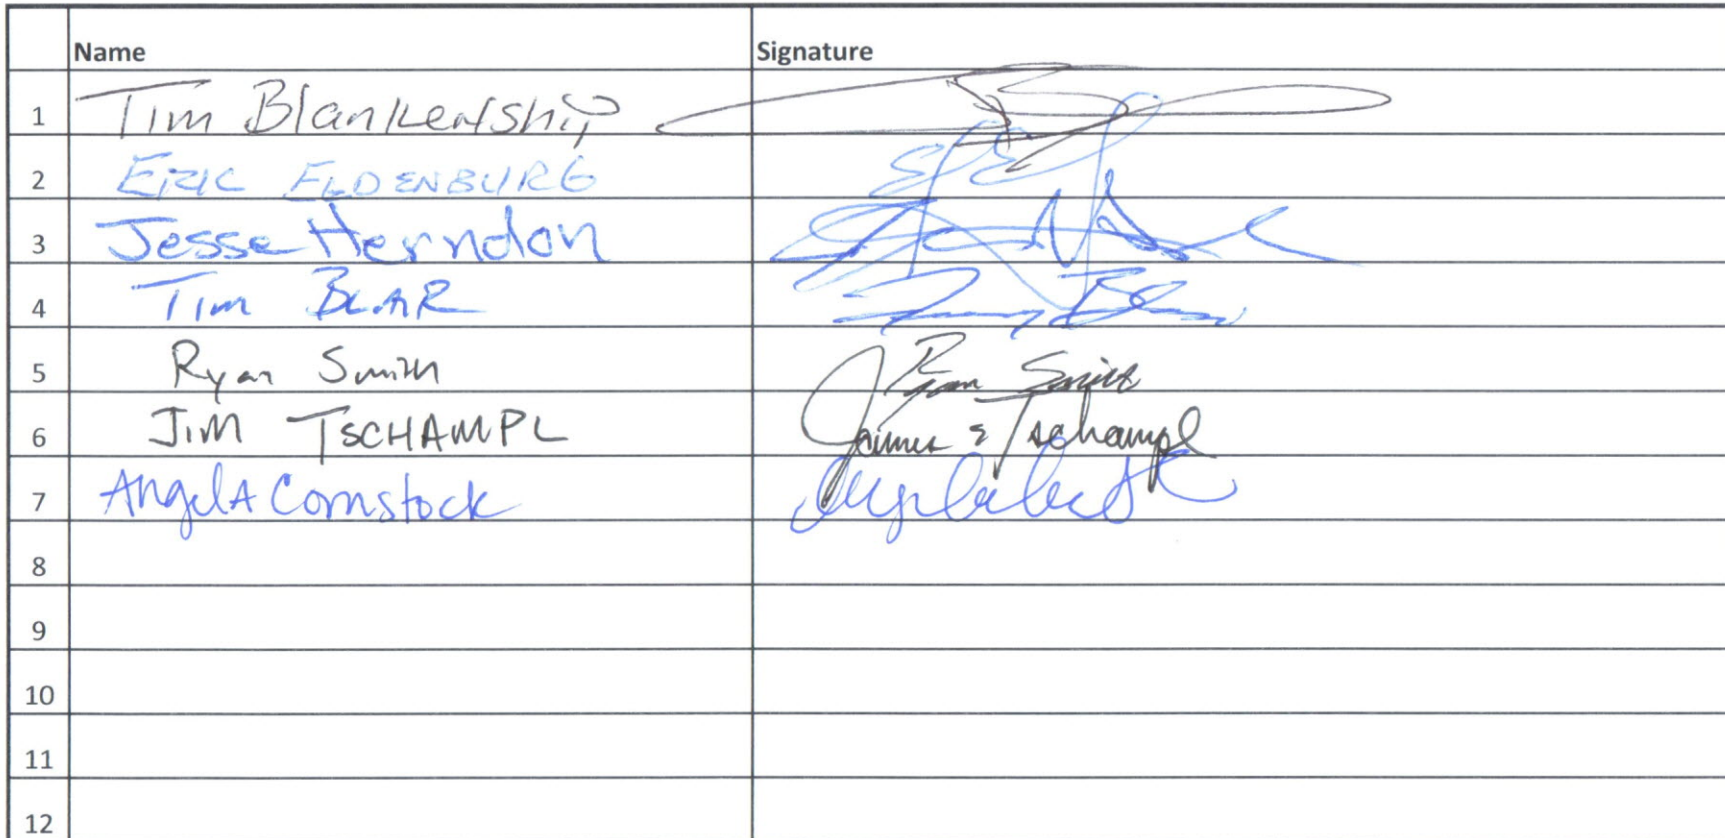 Name Signature
1 Tim Blankenship
2 ERIC ELDENBURG
3 Jesse Herndon
4 Tim BLAR
5 Ryan Smith Ryan Smith
6 JIM TSCHAMPL James E Tschampl
7 AngelA Comstock
8
9
10
11
12